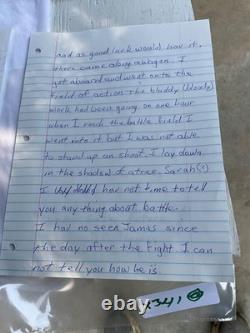 and as good luck would hav it,
there came a bugy or wagon. I
got aboard and went onto the
field of action the bluddy (Words)
work had been going on one hour
when I reach the battle field I
went into it but I was not able
to stand up an shoot I lay down
in the shadow of a tree. Sarah(?)
I have not time to tell
you any thing about battle.
I had no seen James since
the day after the fight. I can
not tell you how he is
1341